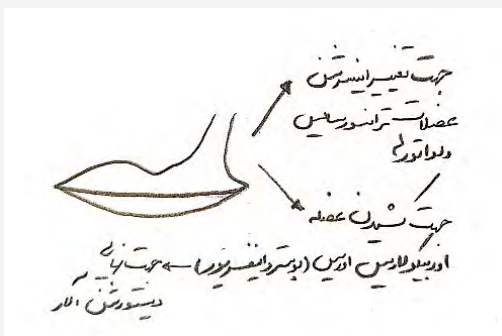 جهت تغییر اینسرشن
عضلات ترانسورسالیس
و لواتور لب
جهت کشیدن عضله
اوربیکولاریس اوریس (پوسترو اینفریور) ← جهت نهایی
دیستورشن آلار